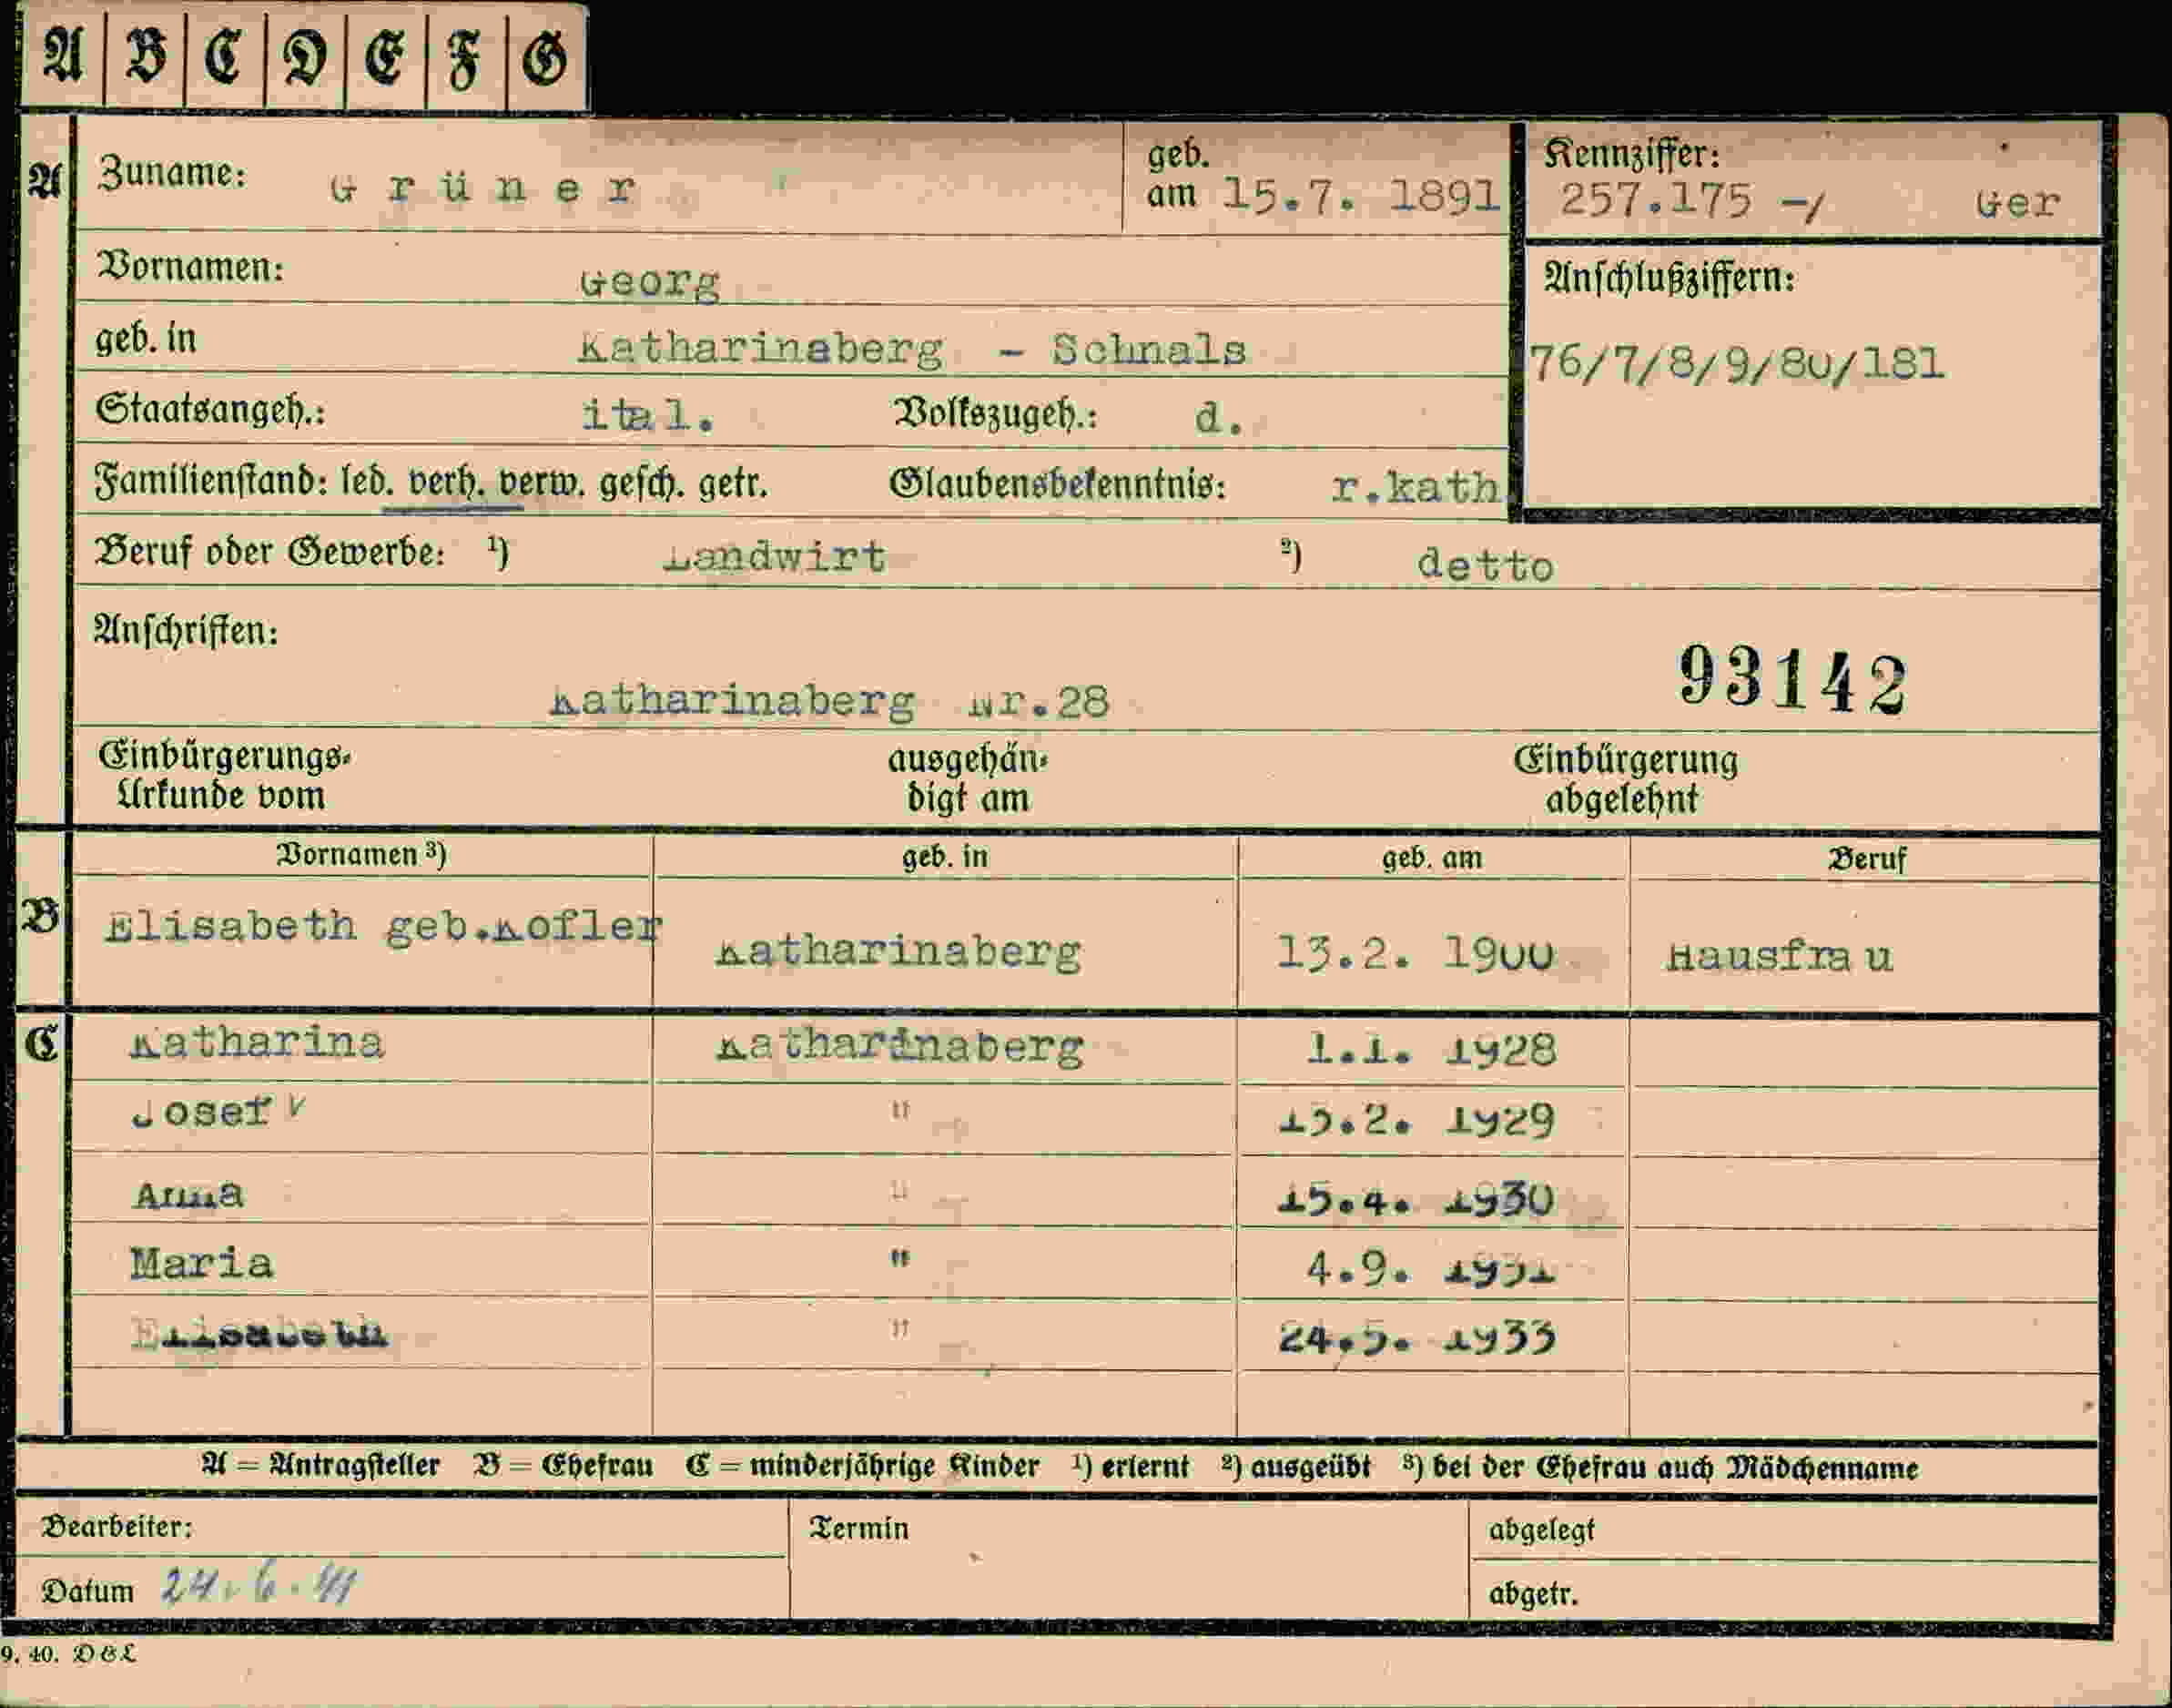 A B C D E F G
A Zuname: Grüner geb. am 15.7. 1891 Kennziffer: 257.175 -/ Ger
Vornamen: Georg
Anschlußziffern:
geb. in Katharinaberg - Schnals
76/7/8/9/80/181
Staatsangeh.: ital. Volkszugeh.: d.
Familienstand: led. verh. verw. gesch. getr. Glaubensbekenntnis: r.kath
Beruf oder Gewerbe: ¹) Landwirt ²) detto
Anschriften:
Katharinaberg Nr.28
93142
Einbürgerungs-Urkunde vom ausgehändigt am Einbürgerung abgelehnt
Vornamen ³) geb. in geb. am Beruf
B Elisabeth geb.Kofler Katharinaberg 13.2. 1900 Hausfrau
C Katharina Katharinaberg 1.1. 1928
Josef " 15.2. 1929
Anna " 15.4. 1930
Maria " 4.9. 1931
Elisabeth " 24.5. 1933
A = Antragsteller B = Ehefrau C = minderjährige Kinder ¹) erlernt ²) ausgeübt ³) bei der Ehefrau auch Mädchenname
Bearbeiter: Termin abgelegt
Datum 24.6.41 abgetr.
9. 40. D & L